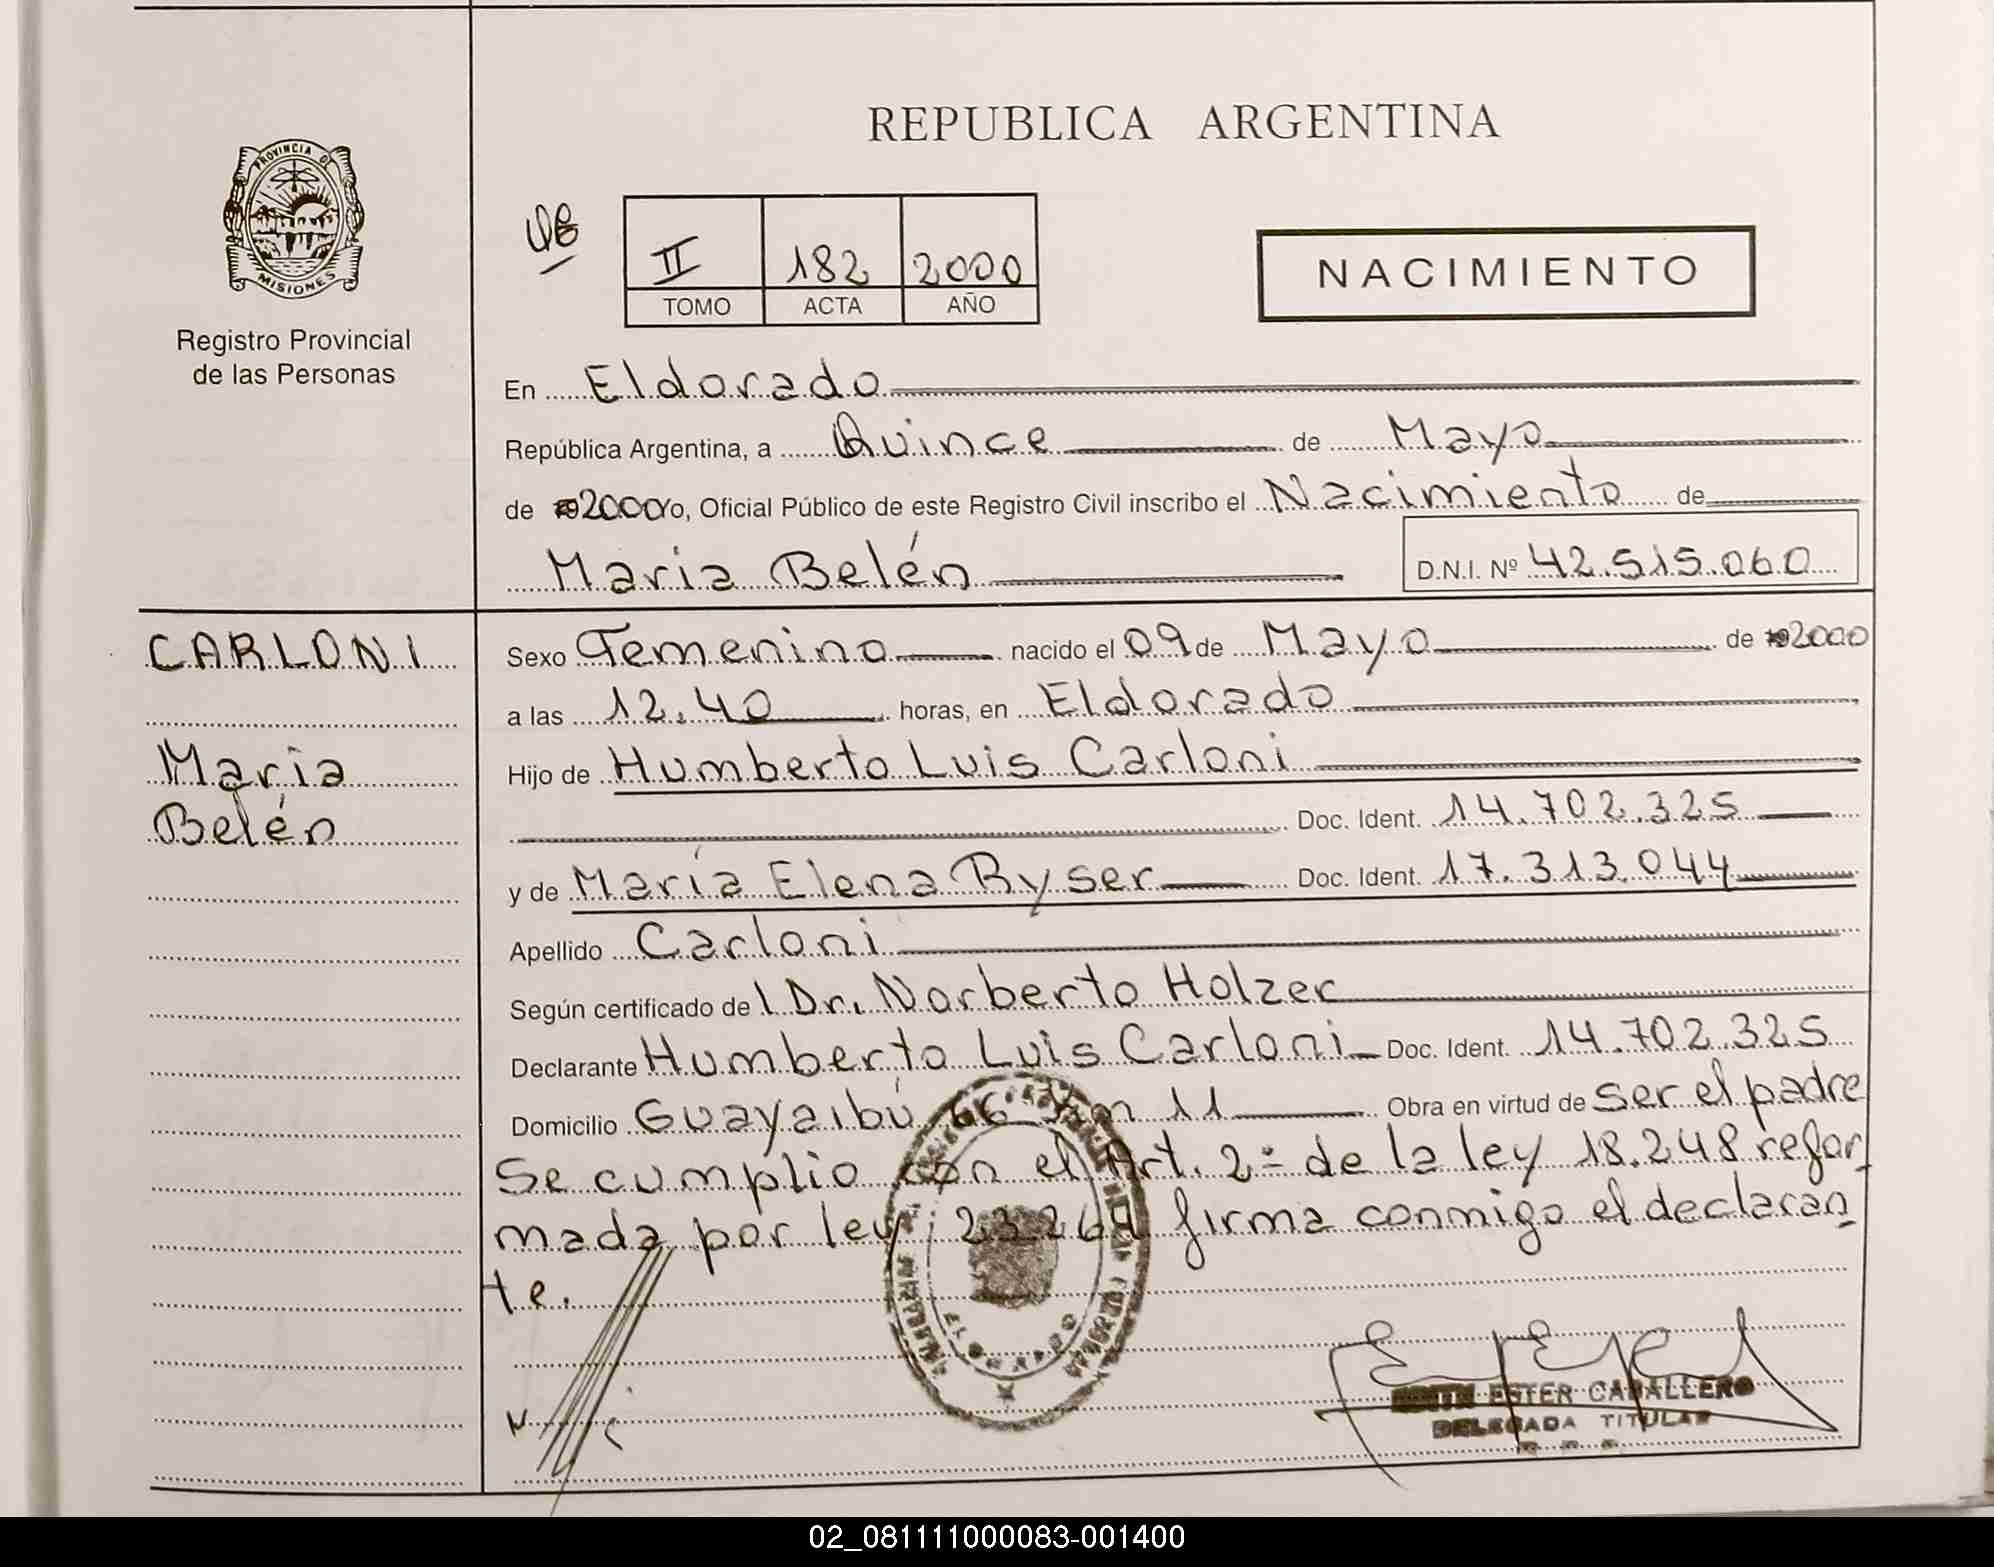 REPUBLICA ARGENTINA
PROVINCIA DE
MISIONES
Registro Provincial
de las Personas
II 182 2000
TOMO ACTA AÑO
NACIMIENTO
En Eldorado
República Argentina, a Quince de Mayo
de 2000 yo, Oficial Público de este Registro Civil inscribo el Nacimiento de
Maria Belén D.N.I. Nº 42.515.060
CARLONI
Maria
Belén
Sexo Femenino nacido el 09 de Mayo de 2000
a las 12.40 horas, en Eldorado
Hijo de Humberto Luis Carloni
Doc. Ident. 14.702.325
y de María Elena Ryser Doc. Ident. 17.313.044
Apellido Carloni
Según certificado de l Dr. Norberto Holzer
Declarante Humberto Luis Carloni Doc. Ident. 14.702.325
Domicilio Guayaibú 66 km 11 Obra en virtud de ser el padre
Se cumplio con el Art. 2º de la ley 18.248 refor
mada por ley 23264 firma conmigo el declaran
te.
ELDORADO
ESTER CABALLERO
DELEGADA TITULAR
02_081111000083-001400